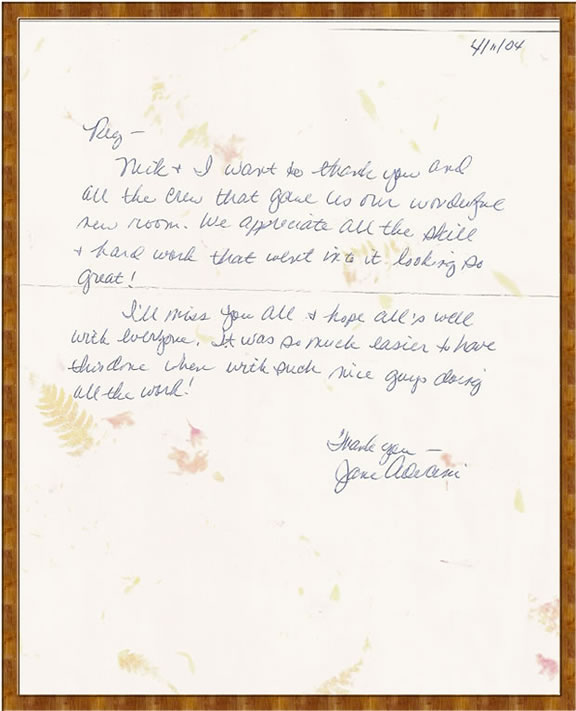 4/11/04
Reg -
Nick + I want to thank you and
all the crew that gave us our wonderful
new room. We appreciate all the skill
+ hard work that went into it looking so
great!
I'll miss you all + hope all's well
with everyone. It was so much easier to have
this done when with such nice guys doing
all the work!
Thank you -
Jane